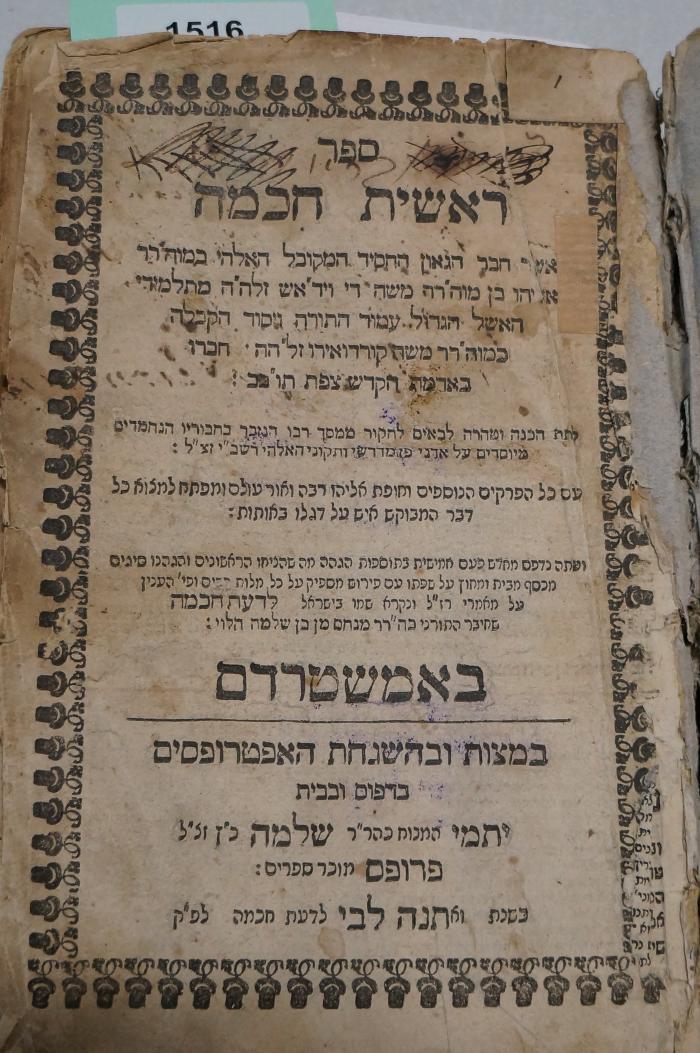 1516
1
ספר
ראשית חכמה
אשר חבר הגאון החסיד המקובל האלהי כמוה״רר
אליהו בן מוה״רה משה די ויד״אש זלה״ה מתלמידי
האשל הגדול עמוד התורה ויסוד הקבלה
כמוה״רר משה קורדואירו ז״ל הה חברו
באדמת הקדש צפת תו״בב:
לתת הכנה וטהרה לבאים לחקור ממסך רבו הנזכר בחבוריו הנחמדים
מיוסדים על אדני פז מדרשי ותקוני האלהי רשב״י זצ״ל:
עם כל הפרקים הנוספים וחופת אליהו רבה ואור עולם ומפתח למצוא כל
דבר המבוקש איש על דגלו באותות:
ועתה נדפס מחדש פעם חמישית בתוספות הגהה מה שהניחו הראשונים והגהנו סיגים
מכסף מבית ומחוץ על שפתו עם פירוש מספיק על כל מלות רבים ופי׳ הענין
על מאמרי רז״ל ונקרא שמו בישראל לדעת חכמה
שחיבר התורני כה״רר מנחם מן בן שלמה הלוי:
באמשטרדם
במצות ובהשגחת האפטרופסים
בדפוס ובבית
יתמי המנוח כהר״ר שלמה כ״ץ זצ״ל
פרופס מוכר ספרים:
בשנת ואתנה לבי לדעת חכמה לפ״ק